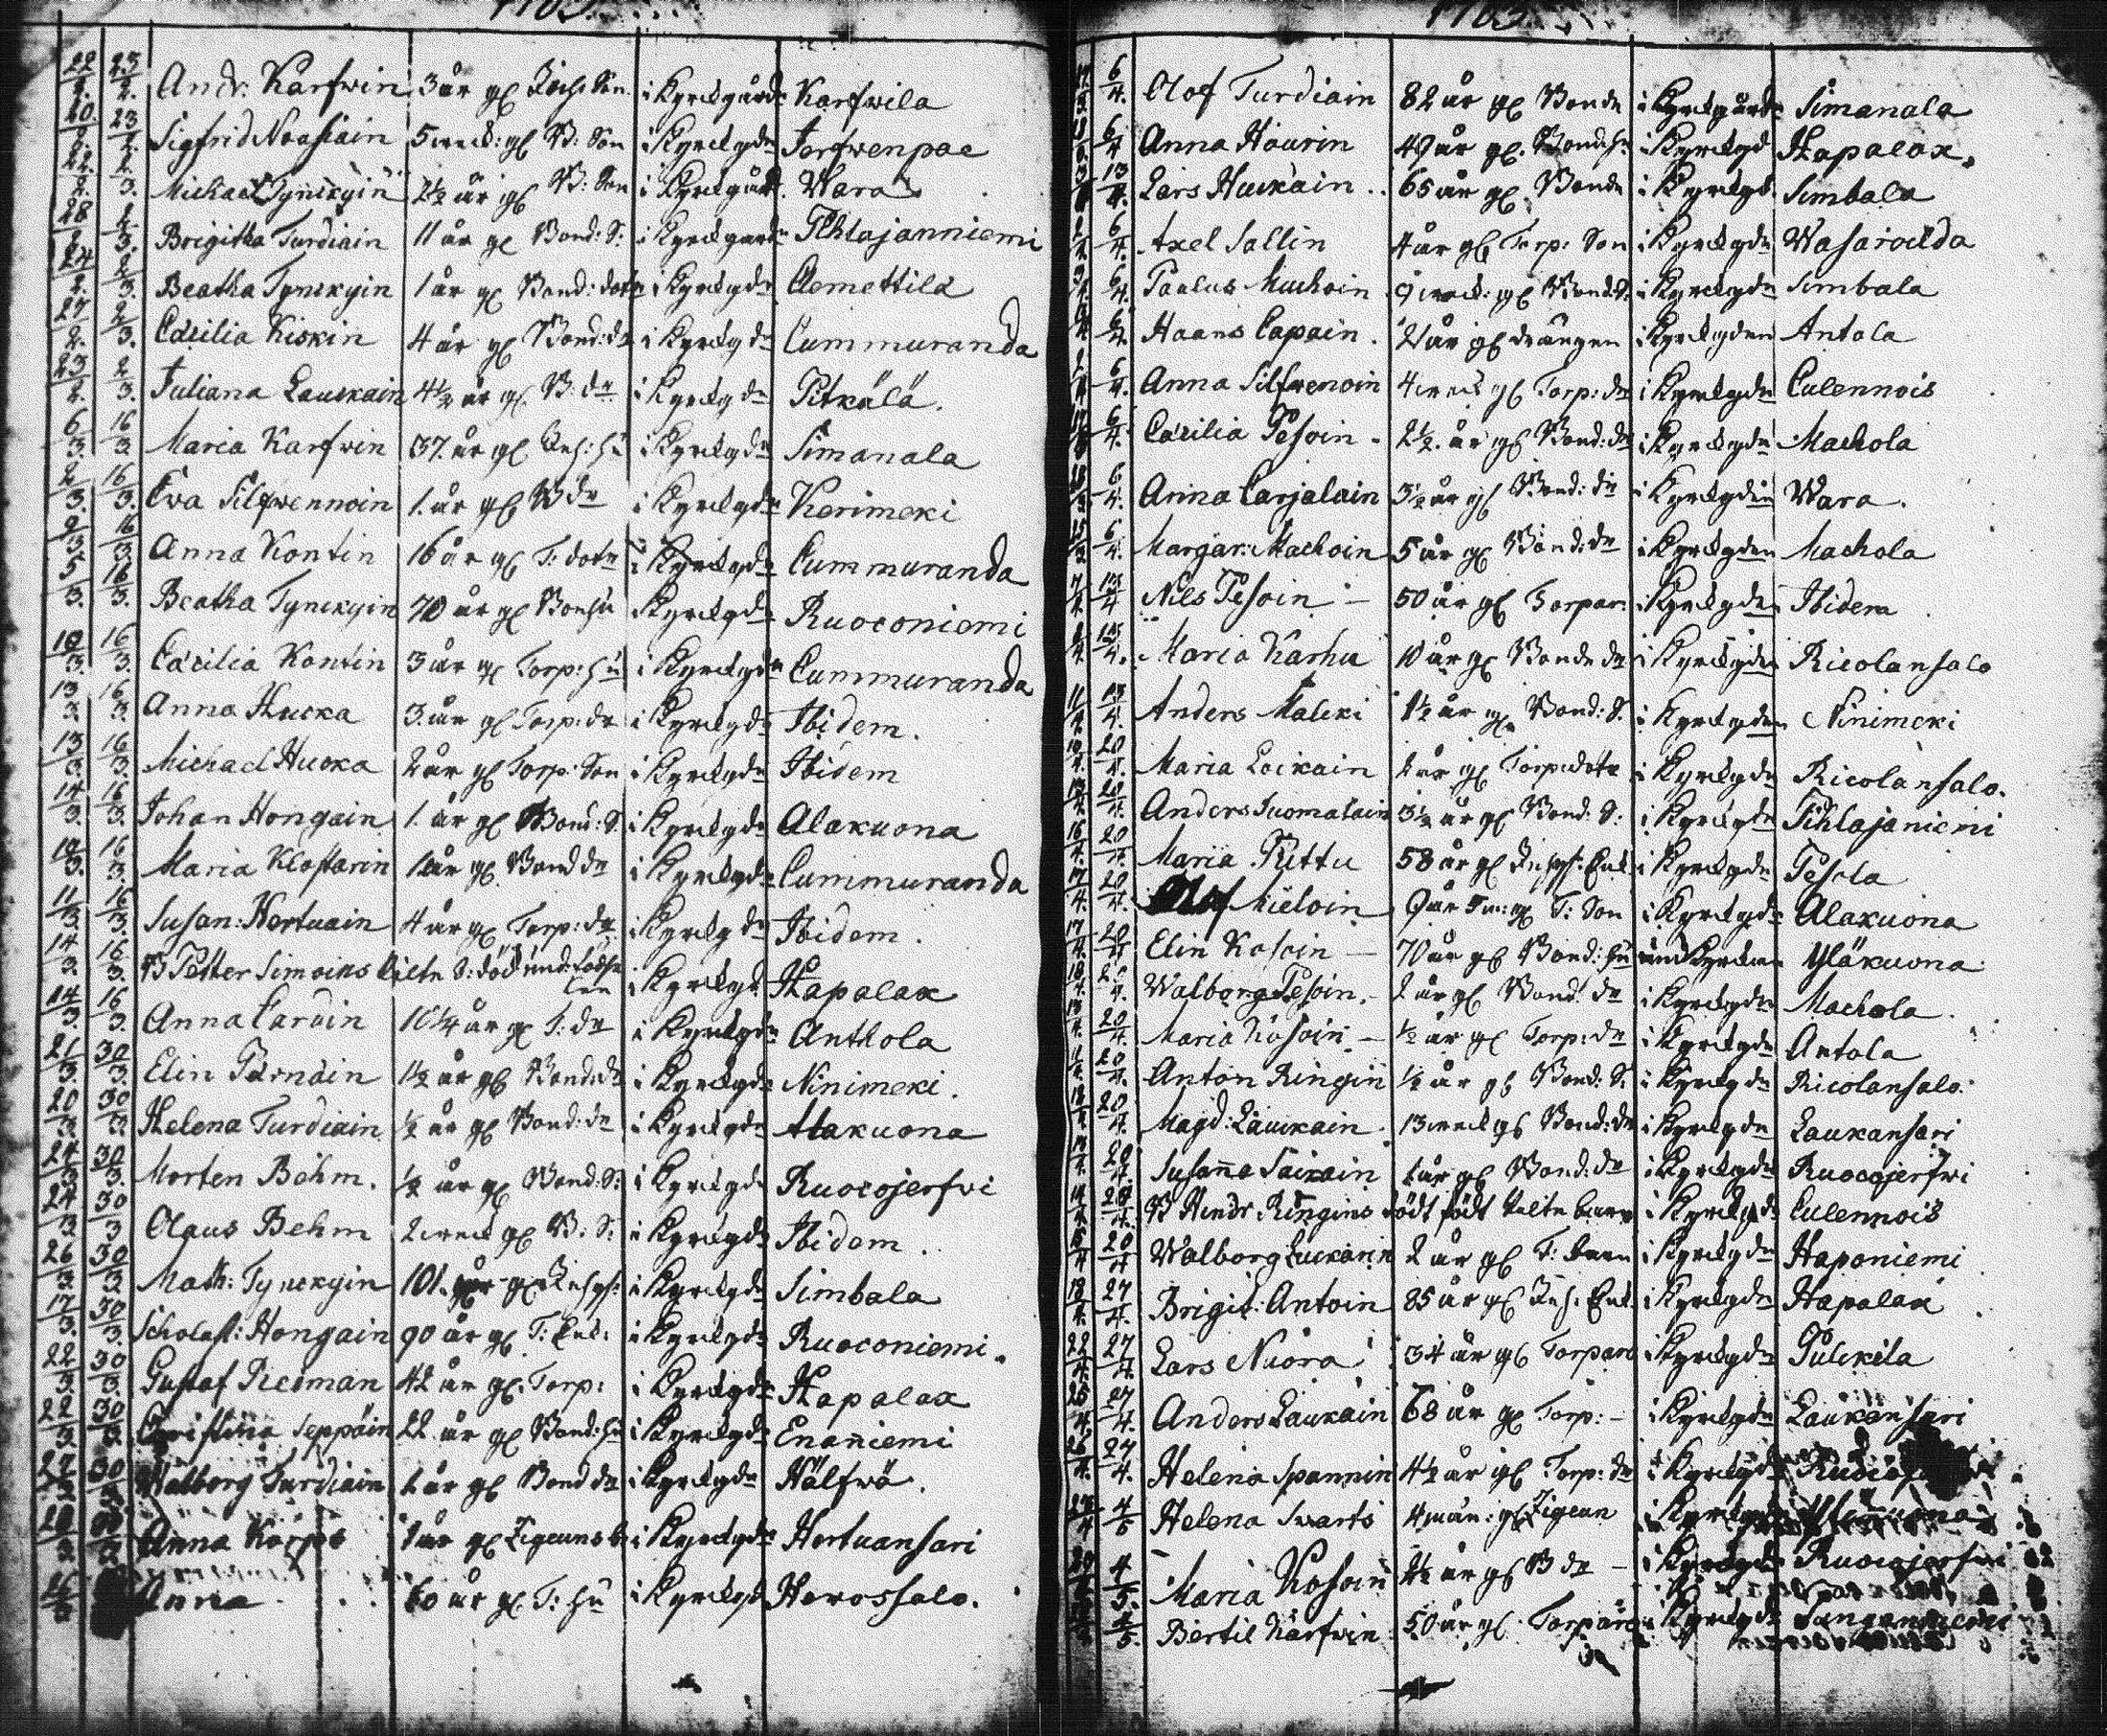 22/2. 23/2. Andr. Karfwin 3 år gl Inhs Son i Kyrckgård: Karfwila
20/2. 23/2. Sigfrid Nousiain 5 weck: gl B: Son i Kyrckgdn Jerfwenpae
22/2. 2/3. Michael Tynckyin 2½ år gl B: Son i Kyrckgård Wara
28/2. 2/3. Brigitha Turdiain 11 år gl Bond: S: i Kyrckgårdn Pihlajanniemi
24/2. 2/3. Beatha Tynckyin 1 år gl Bond: dotn i Kyrckgdn Clemettilä
27/2. 2/3. Cæcilia Kiskin 4 år gl Bond: dn i Kyrckgdn Cummuranda
23/2. 2/3. Juliana Lauckain 4½ år gl B: dn i Kyrckgdn Pitkälä.
6/3. 16/3. Maria Karfwin 37. år gl Inh: hu i Kyrckgdn Simanala
2/3. 16/3. Ewa Silfwennoin 1. år gl B dn i Kyrckgdn Kerimeki
2/3 16/3. Anna Kontin 16 år gl T: dotn i Kyrckgdn Cummuranda
5/3. 16/3. Beatha Tynckyin 70 år gl Bonhu Kyrckgdn Ruoconiemi
10/3. 16/3. Cæcilia Kontin 3 år gl Torp: hu i Kyrckgdn Cummuranda
13/3 16/3. Anna Hucka 3. år gl Torp: dn i Kyrckgdn Ibidem.
13/3. 16/3. Michael Hucka 2 år gl Torp: Son i Kyrckgdn Ibidem
14/3. 16/3. Johan Hongain 1. år gl Bond: S. i Kyrckgdn Alakuona
16/3. Maria Klostarin år gl Bond dn i Kyrckgdn Cummuranda
11/3. 16/3. Susan: Hertuain 4 år gl Torp: dn i Kyrckgdn Ibidem.
14/3. 16/3. B Petter Simoins i Kyrckgd Hapalax
14/3. 16/3. Anna 10¼ år gl T: dn i Kyrckgdn Anthola
21/3. 30/3. Elin Pärnäin 1½ år gl Bond dn i Kyrckgdn Ninimeki.
20/3. 30/3. Helena Turdiain ½ år gl Bond: dn i Kyrckgdn Alakuona
24/3 30/3. Morten Behm. ½ år gl Bond: S: i Kyrckgdn Ruocojerfwi
24/3 30/3 Olaus Behm 2 weck gl B. S: i Kyrckgdn Ibidem.
26/3. 30/3 Math: Tynckyin 101. år gl Inhys: i Kyrckgdn Simbala
17/3. 30/3. Scholast: Hongain 90 år gl T: Enk: i Kyrckgdn Ruoconiemi.
22/3. 30/3. Gustaf Redman 42 år gl. Torp: i Kyrckgdn Hapalax
22/3 30/3. Christina Seppäin 22 år gl Bond: hu i Kyrckgdn Enaniemi
27/3 30/3 Walborg Turdiain år gl Bond dn i Kyrckgdn Hälfwä.
Anna Korpe år gl Zigeuns i Kyrckgdn Hertuansari
Anna 60 år gl T: hu i Kyrckgd Herossalo.
6/4. Olof Turdiain 82 år gl Bonde i Kyrckgårdn Simanala
6/4 Anna Häurin 49 år gl. Bond: hu i Kyrckgd Hapalax.
13/4. Lars Huckain 65 år gl. Bonde i Kyrckgd Simbala
6/4. Axel Sallin 4 år gl Torp: Son i Kyrckgdn
6/4. Paulus Machoin 9 weck: gl Bond: S. i Kyrckgdn Simbala
6/4. Haans Capain. 21 år gl drängen i Kyrckgden Antola
6/4. Anna Silfwenoin 4 weck gl Torp: dn i Kyrckgdn Culennois
6/4. Cæcilia Pesoin 2½ år gl Bond: dn i Kyrckgdn Machola
6/4. Anna Carjalain 3½ år gl Bond: dn i Kyrckgdn Wara.
6/4. Margar: Machoin 5 år gl Bond: dn i Kyrckgden Machola
7/4. 13/4 Nils Pesoin 50 år gl Torpar: i Kyrckgden Ibidem
13/4. Maria Karhu 10 år gl Bonde dn i Kyrckgden Ricolansalo
11/4. 13/4. Anders Malcki 1½ år gl Bond: S. i Kyrckgden Ninimeki
20/4. Maria Loickain 2 år gl Torp: dotn i Kyrckgdn Ricolansalo.
20/4. Anders Suomalain 3½ år gl Bond: S: i Kyrckgdn Pihlajaniemi
16/4. 20/4. Maria Pittu 58 år gl Inhys: Enk i Kyrckgdn Pesola
17/4. 20/4. Olof Mieloin 9 år gl T: Son i Kyrckgdn Alakuona
17/4. 20/4 Elin Kosoin 70 år gl Bond: hu Kyrckan Yläkuona
20/4. Walborg Pesoin. 2 år gl Bond: dn i Kyrckgdn Machola.
20/4. Maria Kosoin ½ år gl Torp: dn i Kyrckgdn Antola
20/4. Anton Ringin ½ år gl Bond: S. i Kyrckgdn Ricolansalo.
20/4. Magd: Lauckain 13 weck gl Bond: dn i Kyrckgdn Laukansari
20/4. Susanna Saikain år gl Bond: dn i Kyrckgdn Ruocojerfwi
20/4. B Hindr. Ringins dödt född i Kyrckgdn Culennois
20/4 Walborg Luckarin 2 år gl T: i Kyrckgdn Haponiemi
18/4. 27/4. Brigit: Antoin 85 år gl Inh: Enk. i Kyrckgdn Hapalax
22/4. 27/4. Lars Nuora 34 år gl Torpare i Kyrckgdn Pulckila
25/4. 27/4. Anders Laukain 68 år gl Torp: i Kyrckgdn Laukansari
26/4. 27/4. Helena Spannin 4½ år gl Torp: dn i Kyrckgdn
4/5 Helena Swarts 4 mån: gl Zigeun i Kyrckgdn
4/5. Maria Kosoin 2½ år gl B dn i Kyrckgdn Ruocojerfwi
4/5. Bertil Karfwin 50 år gl. Torpare i Kyrckgdn